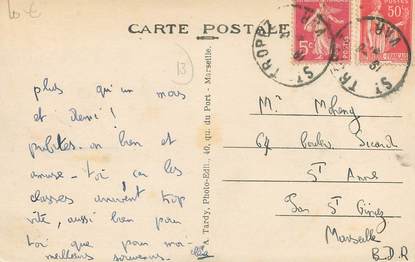 10 €
CARTE POSTALE
13
ST TROPEZ
VAR
5c
POSTES
50c
ST TROPEZ
VAR
plus qu'un mois
et demi !
profites-en bien et
amuse-toi car les
classes arrivent trop
vite, aussi bien pour
toi que pour moi-
meilleurs souvenirs.
A. Tardy, Photo-Edit., 40, qu. du Port - Marseille.
Mr
64 Boulev. Sicard
St Anne
Par St Giniez
Marseille
B.D.R